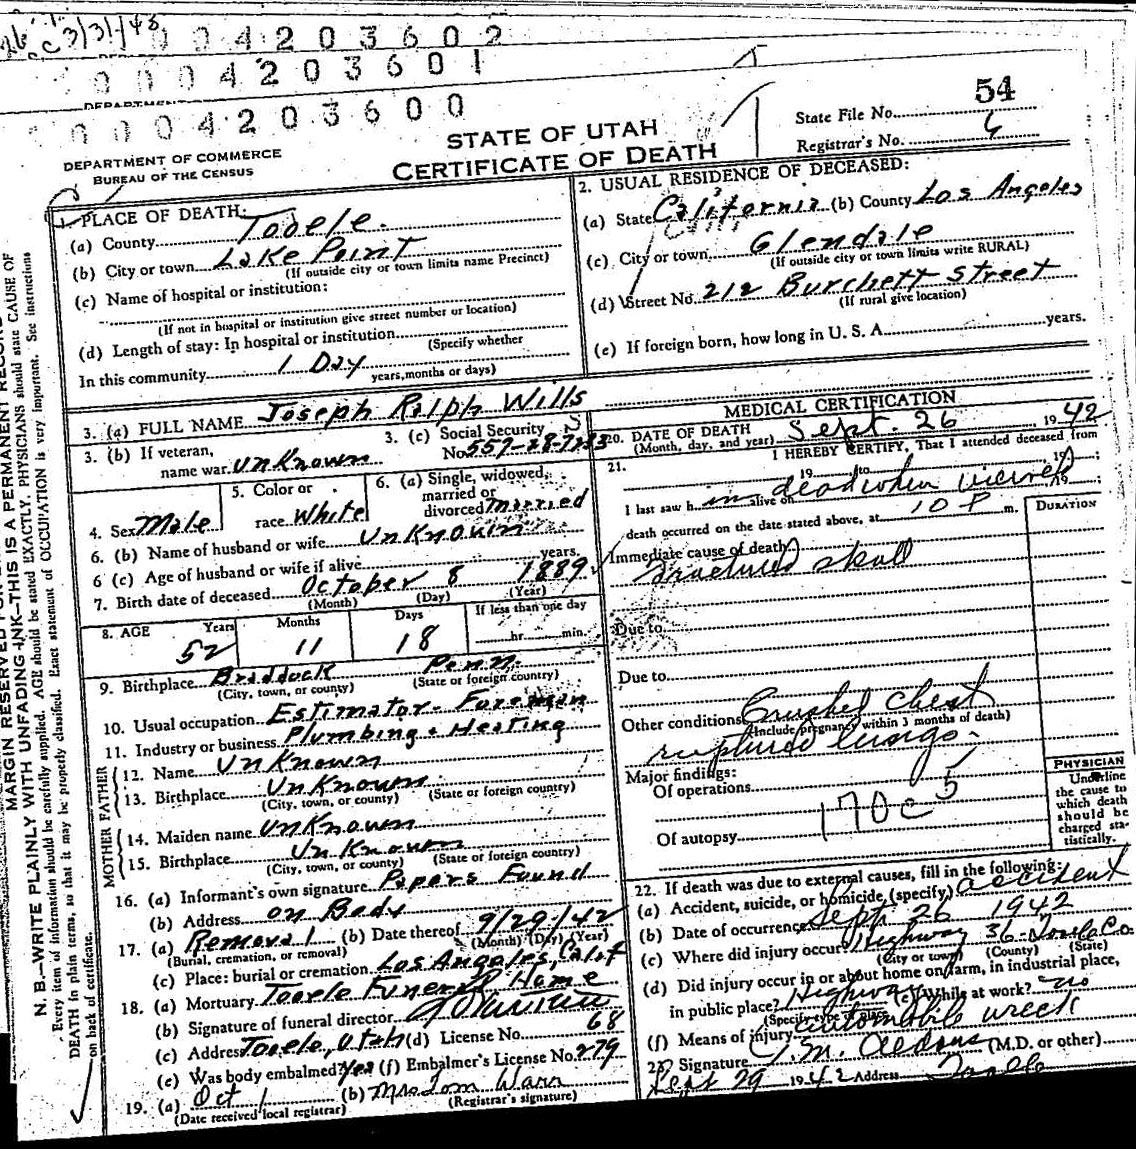 3/31/43
0 0 0 4 2 0 3 6 0 2
0 0 0 4 2 0 3 6 0 1
0 0 0 4 2 0 3 6 0 0
STATE OF UTAH
CERTIFICATE OF DEATH
DEPARTMENT OF COMMERCE
BUREAU OF THE CENSUS
State File No. 54
Registrar's No. 6
MARGIN RESERVED FOR
N. B.—WRITE PLAINLY WITH UNFADING INK—THIS IS A PERMANENT RECORD
Every item of information should be carefully supplied. AGE should be stated EXACTLY. PHYSICIANS should state CAUSE OF
DEATH in plain terms, so that it may be properly classified. Exact statement of OCCUPATION is very important. See instructions
on back of certificate.
1. PLACE OF DEATH:
(a) County Tooele.
(b) City or town Lake Point
(If outside city or town limits name Precinct)
(c) Name of hospital or institution:
(If not in hospital or institution give street number or location)
(d) Length of stay: In hospital or institution
(Specify whether
In this community 1 Day
years, months or days)
2. USUAL RESIDENCE OF DECEASED:
(a) State California (b) County Los Angeles
(c) City or town Glendale
(If outside city or town limits write RURAL)
(d) Street No. 212 Burchett Street
(If rural give location)
(e) If foreign born, how long in U. S. A. years.
3. (a) FULL NAME Joseph Ralph Wills
3. (b) If veteran, name war unknown
3. (c) Social Security No. 557-28-7233
4. Sex Male
5. Color or race White
6. (a) Single, widowed, married or divorced married
6. (b) Name of husband or wife Unknown
6 (c) Age of husband or wife if alive years.
7. Birth date of deceased October 8 1889
(Month) (Day) (Year)
8. AGE Years Months Days If less than one day
52 11 18 hr. min.
9. Birthplace Braddock Penn.
(City, town, or county) (State or foreign country)
10. Usual occupation Estimator - Foreman
11. Industry or business Plumbing + Heating
FATHER
12. Name Unknown
13. Birthplace Unknown.
(City, town, or county) (State or foreign country)
MOTHER
14. Maiden name Unknown
15. Birthplace Unknown
(City, town, or county) (State or foreign country)
16. (a) Informant's own signature Papers Found
(b) Address on Body
17. (a) Removal (b) Date thereof 9/29/42
(Burial, cremation, or removal) (Month) (Day) (Year)
(c) Place: burial or cremation Los Angeles, Calif
18. (a) Mortuary Tooele Funeral Home
(b) Signature of funeral director
(c) Address Tooele, Utah (d) License No. 68
(e) Was body embalmed? Yes (f) Embalmer's License No. 279
19. (a) Oct 1 (b) Mrs Tom Warr
(Date received local registrar) (Registrar's signature)
MEDICAL CERTIFICATION
20. DATE OF DEATH Sept. 26 1942
(Month, day, and year)
21. I HEREBY CERTIFY, That I attended deceased from
19 to 19 ;
I last saw h im alive on dead when viewed 19 ;
death occurred on the date stated above, at 10 P m.
DURATION
Immediate cause of death
fractured skull
Due to
Due to
Other conditions Crushed chest
(Include pregnancy within 3 months of death)
ruptured lungs.
Major findings:
Of operations
170c 5
Of autopsy
PHYSICIAN
Underline
the cause to
which death
should be
charged sta-
tistically.
22. If death was due to external causes, fill in the following:
(a) Accident, suicide, or homicide (specify) accident
(b) Date of occurrence Sept 26 1942
(c) Where did injury occur? Highway 36 Tooele Co.
(City or town) (County) (State)
(d) Did injury occur in or about home on farm, in industrial place,
in public place? Highway (e) While at work? no
(Specify type of place)
(f) Means of injury automobile wreck
23. Signature (M.D. or other)
Sept 29 1942 Address Tooele